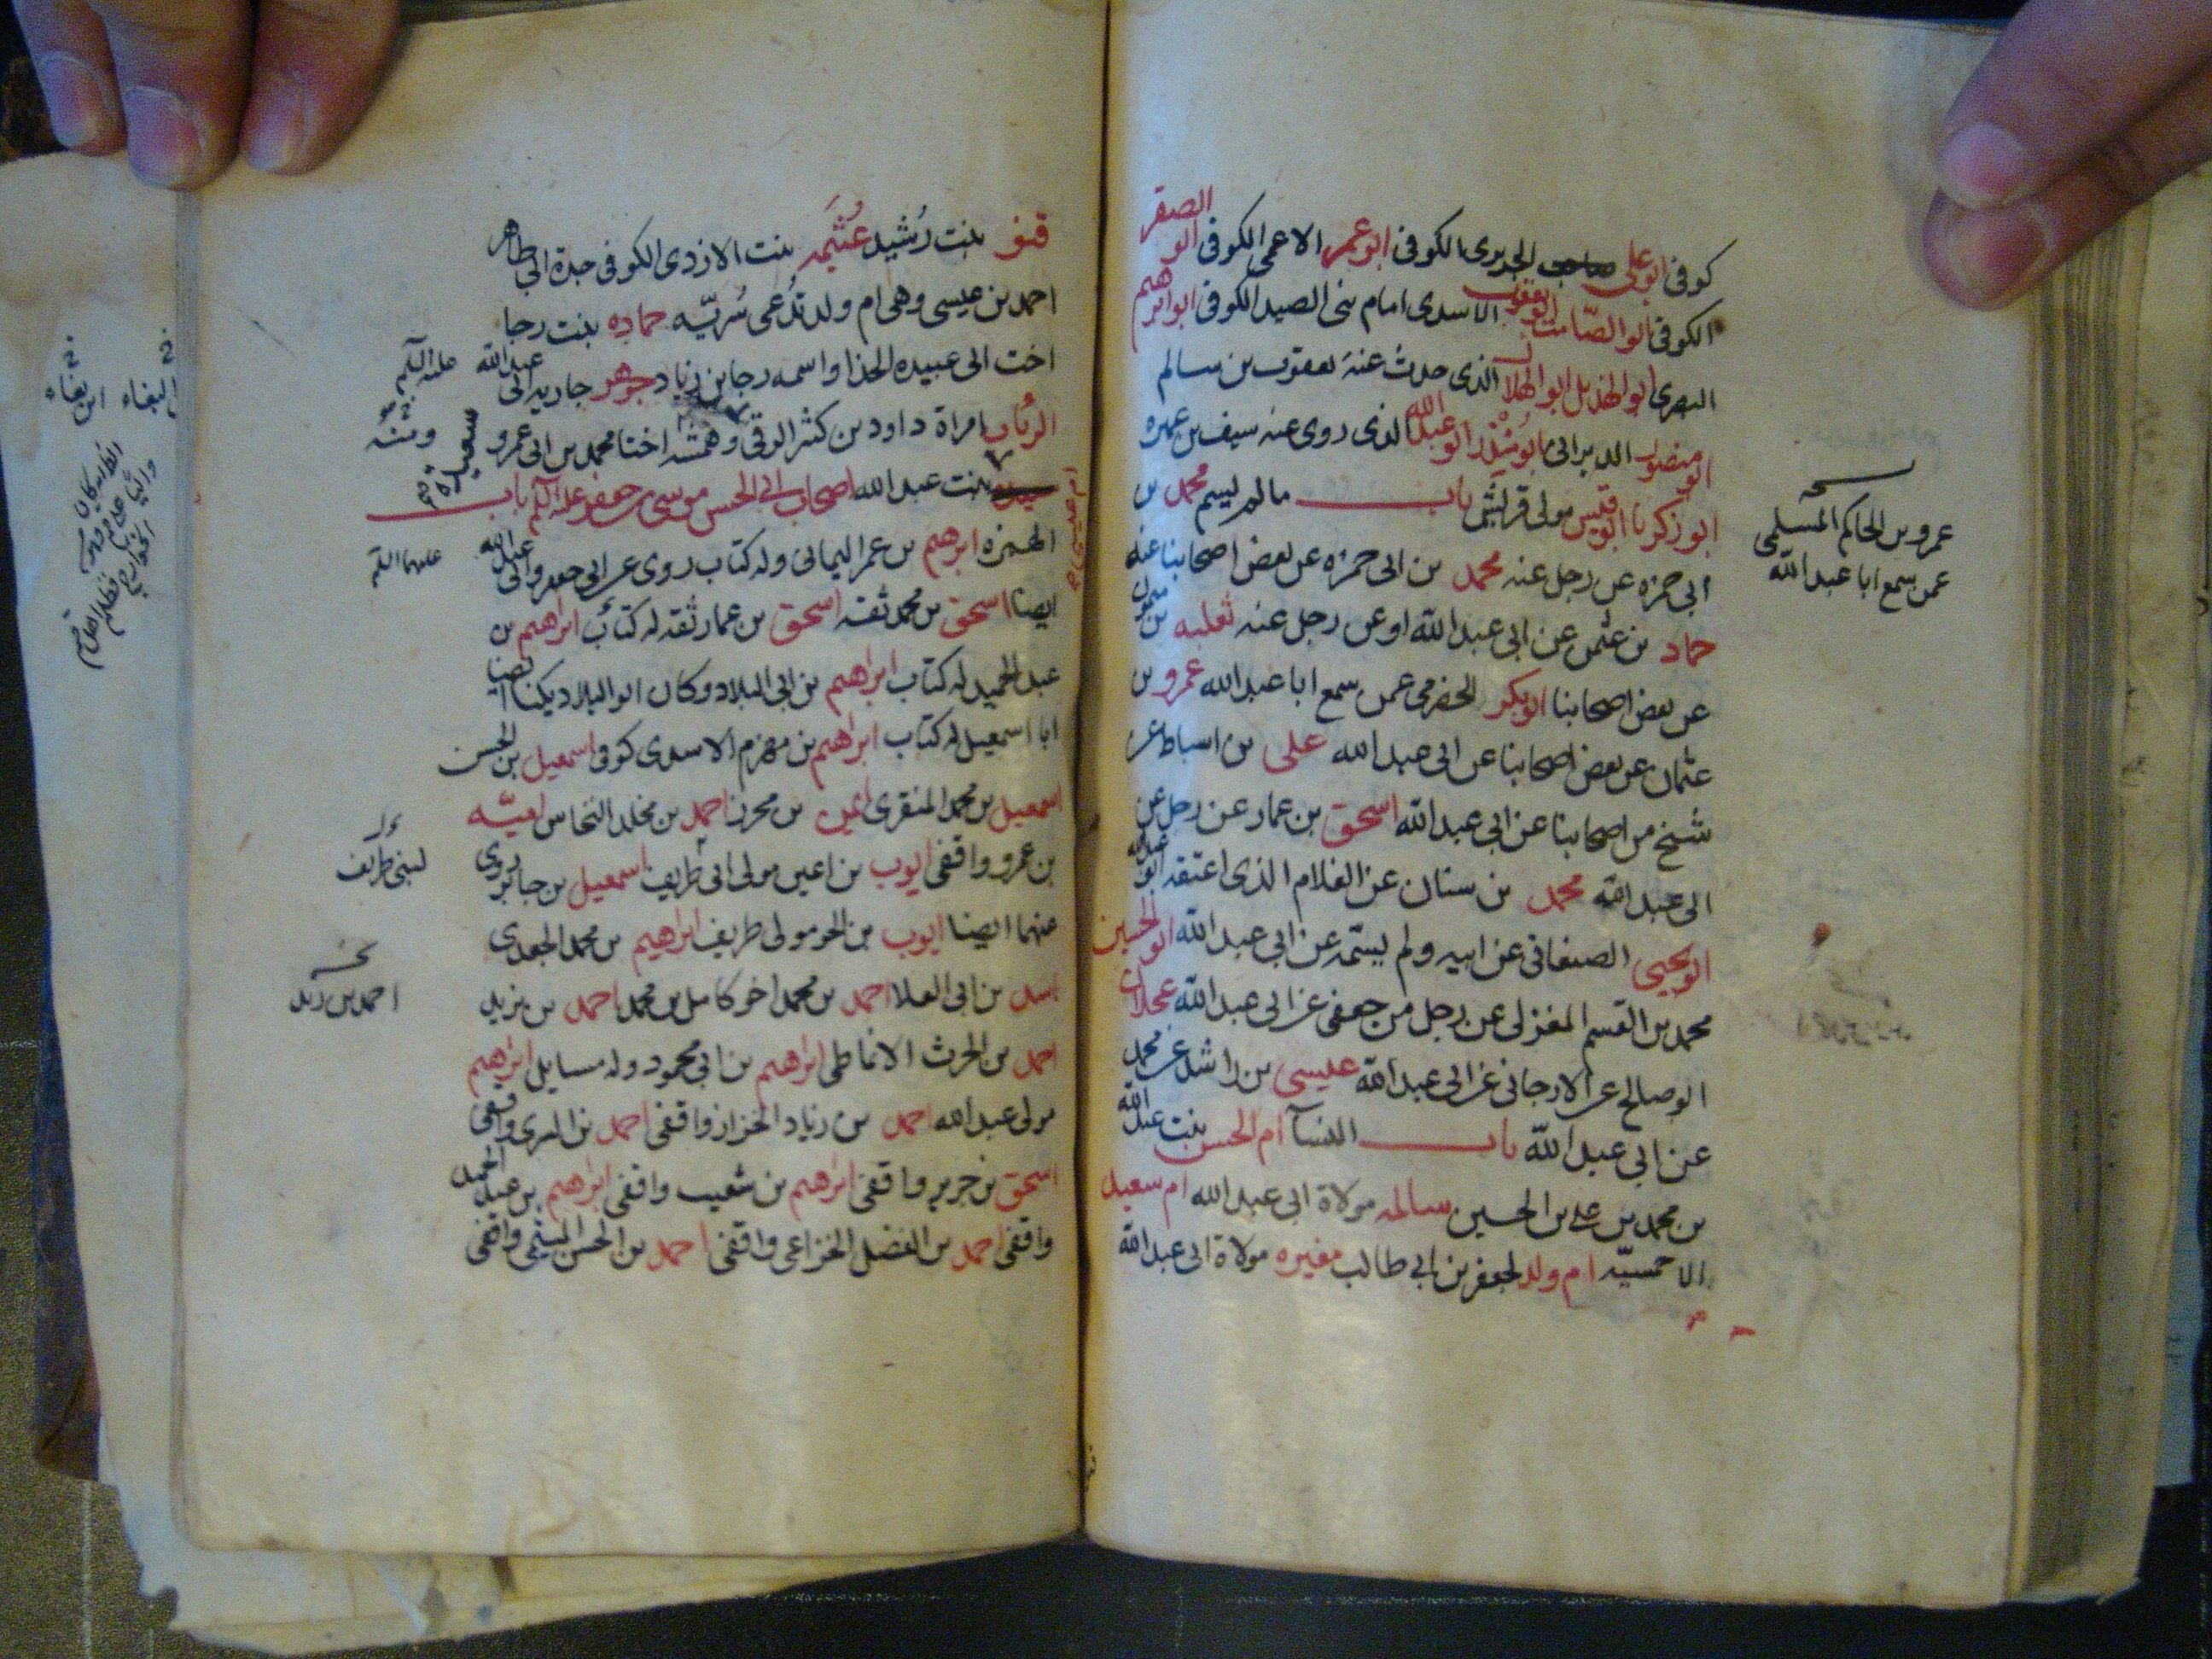 كوفى ابو على الجريرى الكوفى ابو عمر الاعمى الكوفى ابو الصقر
الكوفى ابو الصامت ابو يعقوب الاسدى امام بنى الصيدا الكوفى ابو ابرهيم
البصرى ابو الهذيل ابو الهلال الذى حدث عنه يعقوب بن سالم
ابو منصور ابو عبد الله الذى روى عنه سيف بن عميره
ابو زكريا ابو قيس مولى قريش باب ما لم يسم محمد بن
ابى حمزه عن رجل عنه محمد بن ابى حمزه عن بعض اصحابنا عنه
حماد بن عثمن عن ابى عبد الله او عن رجل عنه ثعلبه بن ميمون
عن بعض اصحابنا ابو بكر الحضرمى عمن سمع ابا عبد الله عمرو بن
عثمان عن بعض اصحابنا عن ابى عبد الله على بن اسباط عن
شيخ من اصحابنا عن ابى عبد الله اسحق بن عمار عن رجل عن
ابى عبد الله محمد بن سنان عن الغلام الذى اعتقه ابو عبد الله
ابو يحيى الصنعانى عن ابيه ولم يسمه عن ابى عبد الله ابو الحسين
محمد بن القسم عن رجل من جعفى عن ابى عبد الله عجلان
ابو صالح عن الارجانى عن ابى عبد الله عيسى بن راشد عن محمد
عن ابى عبد الله باب النسآ ام الحسن بنت عبد الله
بن محمد بن على بن الحسين سالمه مولاة ابى عبد الله ام سعيد
الاحمسيّه ام ولد لجعفر بن ابى طالب مغيره مولاة ابى عبد الله
نسخه
عمرو بن الحاكم المسلمى
عمن سمع ابا عبد الله
بنت رُشيد عُثيمه بنت الازدى الكوفى جدة ابى طاهر
احمد بن عيسى وهى ام ولد تدعى سُريّه حماده بنت رجا
اخت ابى عبيده الحذا واسمه رجا بن زياد جوهر جاريه ابى عبد الله
الرباب امراة داود بن كثير الرقى اختا محمد بن ابى عمرو
بنت عبد الله اصحاب ابى الحسن موسى بن جعفر باب
الهمزه ابرهيم بن عمر اليمانى وله كتاب روى عن ابى جعفر وابى عبد الله
ايضا اسحق بن محمد ثقه اسحق بن عمار ثقه له كتاب ابرهيم بن
عبد الحميد له كتاب ابرهيم بن ابى البلاد وكان ابو البلاد يكنا ايضا
ابا اسمعيل له كتاب ابرهيم بن مهزم الاسدى كوفى اسمعيل بن الحسن
اسمعيل بن محمد المنقرى ايمن بن محرز احمد بن مخلد النخاس اميّه
بن عمرو واقفى ايوب بن اعين مولى ابى طريف اسمعيل بن جابر روى
عنهما ايضا ايوب بن الحر مولى طريف ابرهيم بن محمد الجعدى
اسد بن ابى العلا احمد بن محمد اخو كامل بن محمد احمد بن يزيد
احمد بن الحرث الانماطى ابرهيم بن ابى محمود وله مسايل ابرهيم
مولى عبد الله احمد بن زياد الخزاز واقفى احمد بن السرى واقفى
اسحق بن جرير واقفى ابرهيم بن شعيب واقفى ابرهيم بن عبد الحميد
واقفى احمد بن الفضل الخزاعى واقفى احمد بن الحسن الميثمى واقفى
لبنى طريف
احمد بن زيد